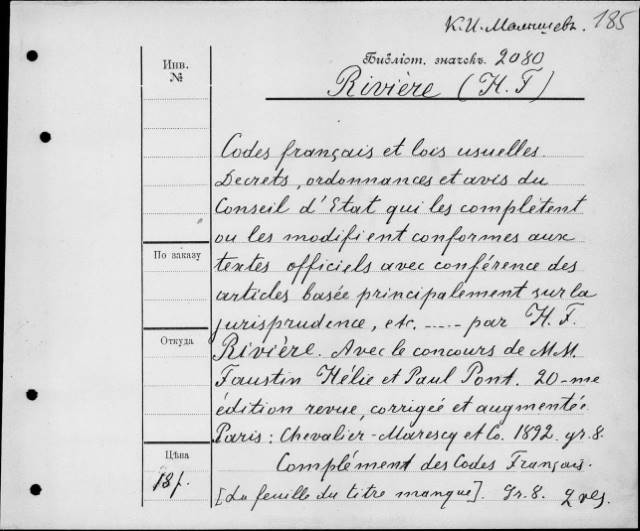 К. И. Малышевъ. 185
Инв.
№
Библіот. значокъ. 2080
Rivière (H. F)
Codes français et lois usuelles.
Decrets, ordonnances et avis du
Conseil d'Etat qui les complètent
ou les modifient conformes aux
По заказу
textes officiels avec conférence des
articles basée principalement sur la
jurisprudence, etc. ..... par H. F.
Откуда
Rivière. Avec le concours de M M.
Faustin Hélie et Paul Pont. 20-me
édition revue, corrigée et augmentée.
Paris: Chevalier-Marescq et Co. 1892. gr. 8.
Цѣна
Complément des Codes Français.
18 f.
[La feuille du titre manque]. Gr. 8. 2 vls.